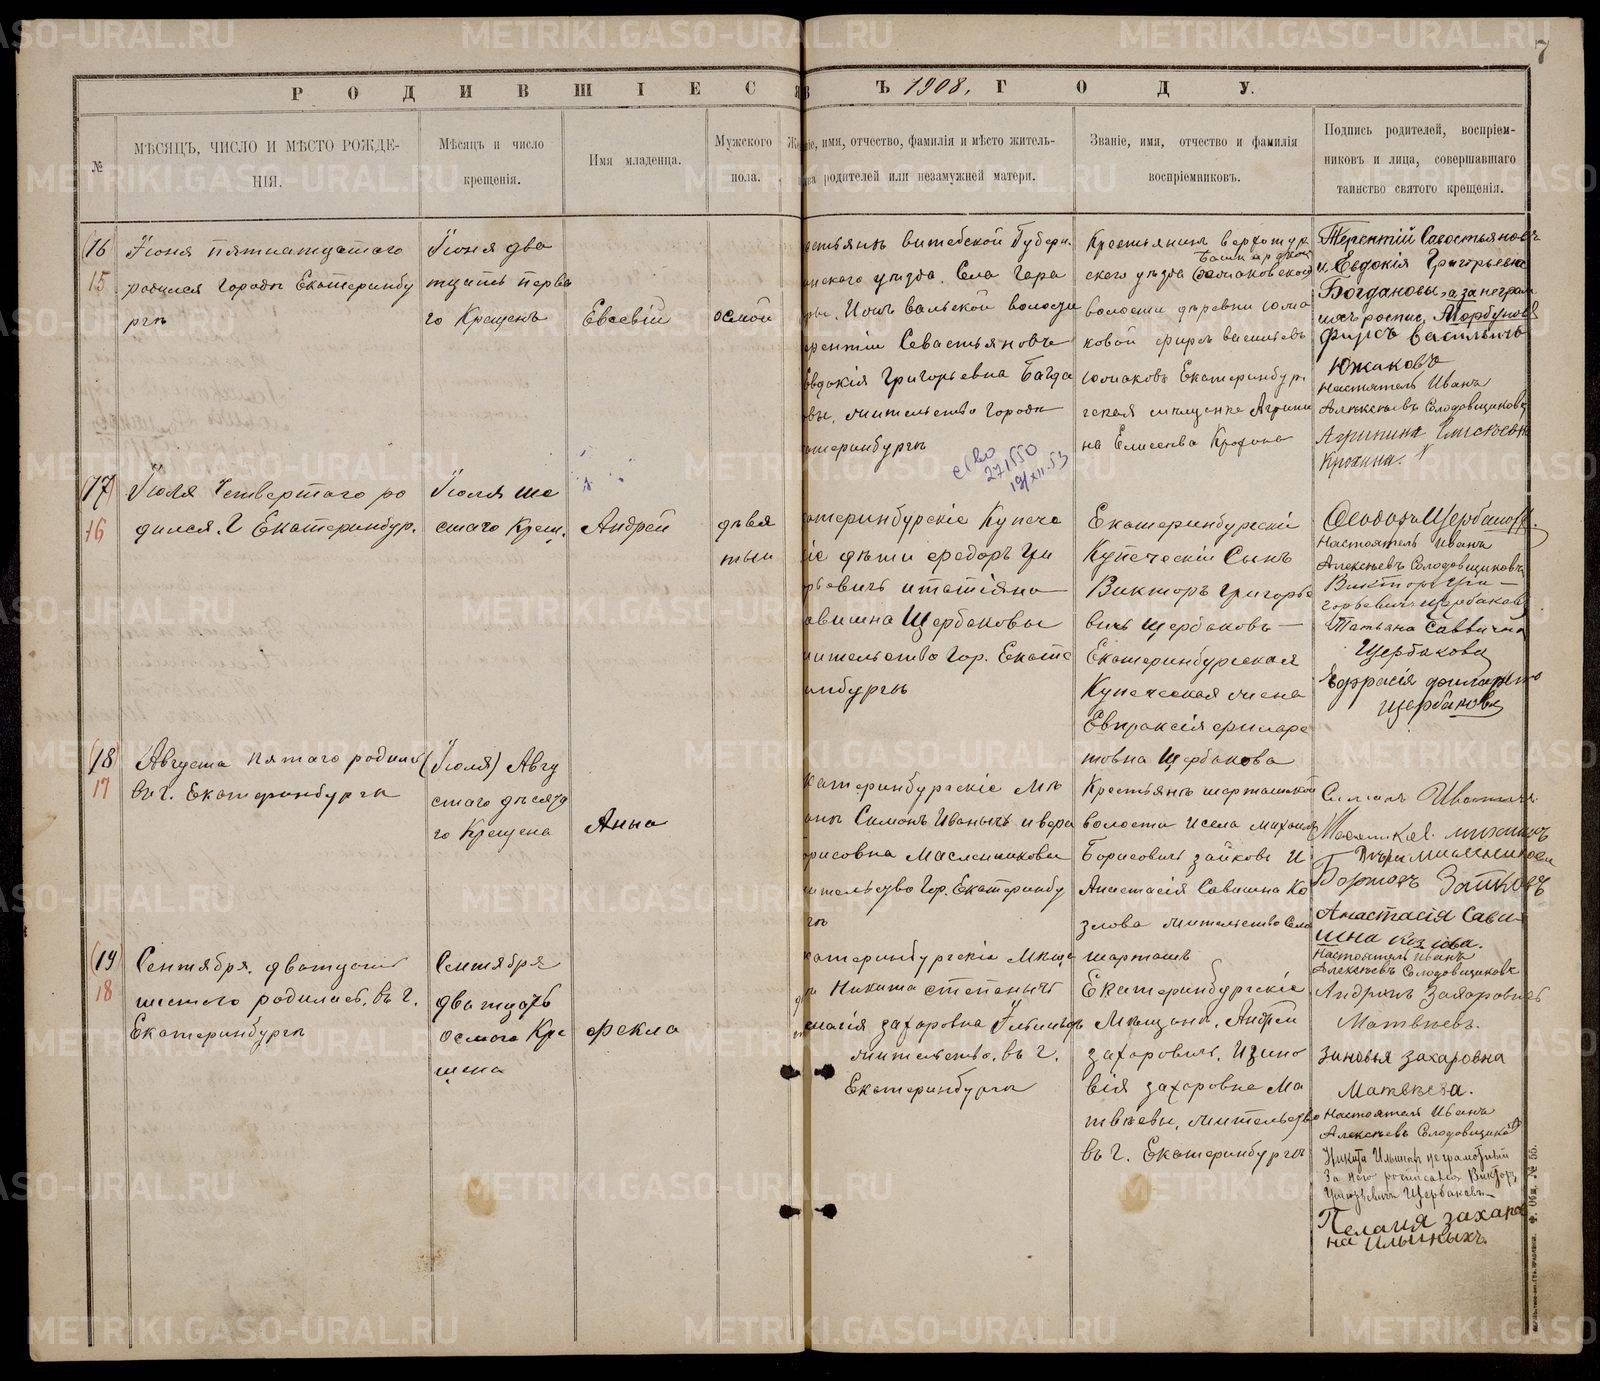 7
РОДИВШІЕСЯ
ВЪ 1908. ГОДУ.
№
МѢСЯЦЪ, ЧИСЛО И МѢСТО РОЖДЕ-
НІЯ.
Мѣсяцъ и число
крещенія.
Имя младенца.
Мужского
пола.
іе, имя, отчество, фамилія и мѣсто житель-
ва родителей или незамужней матери.
Званіе, имя, отчество и фамилія
воспріемниковъ.
Подпись родителей, воспріем-
никовъ и лица, совершавшаго
таинство святого крещенія.
16
15
Іюня пятнатцатаго
родился Городѣ Екатеринбу
ргѣ
Іюня два
тцать перва
го Крещенъ
Евсевій
осмой
естьянъ витебской Губери
нскаго уѣзда. Села Гера
волости
ерентій Севастьяновъ
Евдокія Григорьевна Багда
овы, жительство городѣ
атеринбургѣ
Крестьянинъ верхотур
скаго уѣзда
волости деревни южа
ковой фирсъ васильевъ
южаковъ Екатеринбур
гская мещанка Агрипи
на Елисеева Крохина
Терентій Савостьяновъ
и Евдокія Григорьевна
Богдановы, а за неграм
ихъ роспис.
Фирсъ Васильичь
Южаковъ
Настоятель Иванъ
Алексѣевъ Солодовщиковъ
Агрипина Елисѣевна
Крохина.
27/550
19/XII.53
17
16
Іюля Четвертаго ро
дился. Г Екатеринбур.
Іюля ше
стаго Крещ.
Андрей
девя
тый
атеринбургскіе Купече
іе дѣти федоръ Гри
рьевичь и татіяна
авишна Щербаковы
жительство гор. Екате
инбургѣ
Екатеринбургскій
Купеческій Сынъ
Викторъ Григорье
вичь Щербаковъ —
Екатеринбургская
Купеческая жена
Евпраксія филаре
товна Щербакова
Ѳеодоръ Щербаковъ.
Настоятель Иванъ
Алексѣевъ Солодовщиковъ
Викторъ Гри —
горьевичь Щербаковъ
Татьяна Саввична
Щербакова
Щербакова
18
17
Августа пятаго родила
въ г. Екатеринбургѣ
(Іюля) Авгу
стаго десятд
го Крещена
Анна
катеринбургскіе Мѣ
ане Симонъ Иванычь и вера
орисовна Масленникова
ительство Гор. Екатеринбу
гѣ
Крестьянъ шарташской
волости и села михаилъ
Борисовичь зайковъ И
Анастасія Савишна Ко
злова жительство Села
шарташъ
Симонъ Иванычь
Анастасія Сави-
шна козлова.
Настоятель Иванъ
Алексѣевъ Солодовщиковъ
19
18
Сентября. дватцать
шестого родилась, въ г.
Екатеринбургѣ
Сентября
дватцать
осмого Кре
щена
фекла
катеринбургскіи Мѣща
е Никита степанычь
елагія захаровна Ільиныхъ
жительство. въ г.
Екатеринбургѣ
Екатеринбургскіе
Мещана. Андрей
захаровичь, И зино
вія захаровна Ма
твѣевы, жительство
въ г. Екатеринбургѣ
Андрѣнъ Захаровичь
Матвѣевъ.
Зиновья Захаровна
Матвѣева.
Настоятель Иванъ
Алексѣевъ Солодовщиковъ
Никита Ильиныхъ неграмотный
За него росписался Викторъ
Григорьевичь Щербаковъ—
Пелагия захаров
на ильиныхъ.
METRIKI.GASO-URAL.RU